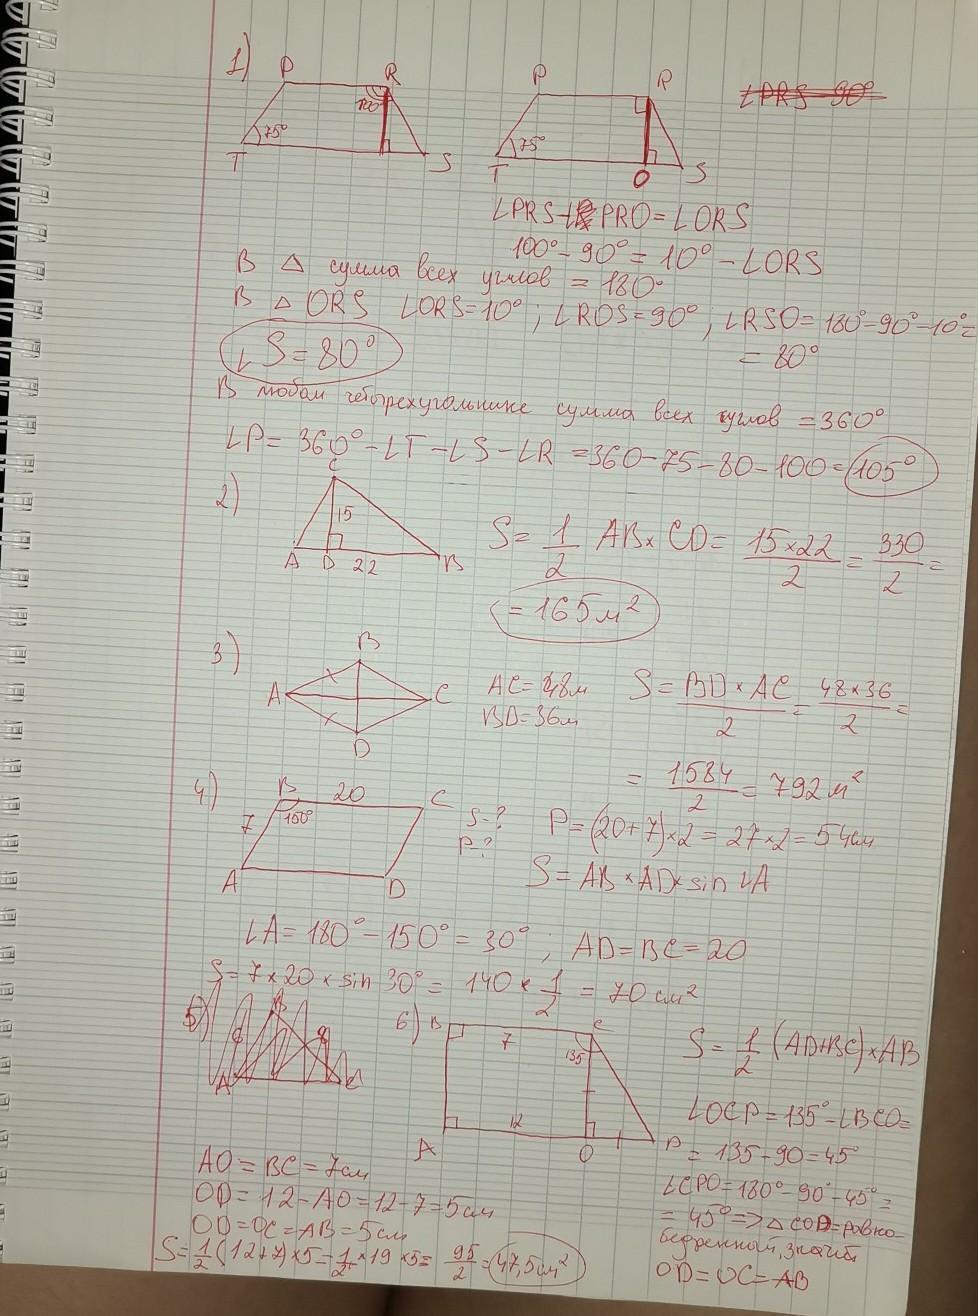 1)
P R
100°
75°
T S
P R
75°
T O S
∠PRS = 90°
∠PRS - ∠PRO = ∠ORS
100° - 90° = 10° - ∠ORS
В △ сумма всех углов = 180°
В △ ORS ∠ORS = 10° ; ∠ROS = 90° ; ∠RSO = 180° - 90° - 10° =
= 80°
∠S = 80°
В любом четырехугольнике сумма всех углов = 360°
∠P = 360° - ∠T - ∠S - ∠R = 360 - 75 - 80 - 100 = 105°
2)
C
15
A D 22 B
S = 1/2 AB × CD = 15×22/2 = 330/2 =
= 165 м²
3)
B
A C
D
AC = 48м
BD = 36м
S = BD × AC/2 = 48×36/2 =
= 1584/2 = 792 м²
4)
B 20 C
7 150°
A D
S-?
P-?
P = (20+7)×2 = 27×2 = 54см
S = AB × AD × sin ∠A
∠A = 180° - 150° = 30° ; AD = BC = 20
S = 7 × 20 × sin 30° = 140 × 1/2 = 70 см²
5)
6)
B 7 C
135
12
A O P
S = 1/2 (AD+BC) × AB
∠OCP = 135° - ∠BCO =
= 135 - 90 = 45°
∠CPO = 180° - 90° - 45° =
= 45° => △ COD = равно-
бедренный, значит
OD = OC = AB
AO = BC = 7см
OD = 12 - AO = 12 - 7 = 5см
OD = OC = AB = 5см
S = 1/2 (12+7) × 5 = 1/2 × 19 × 5 = 95/2 = 47,5 см²